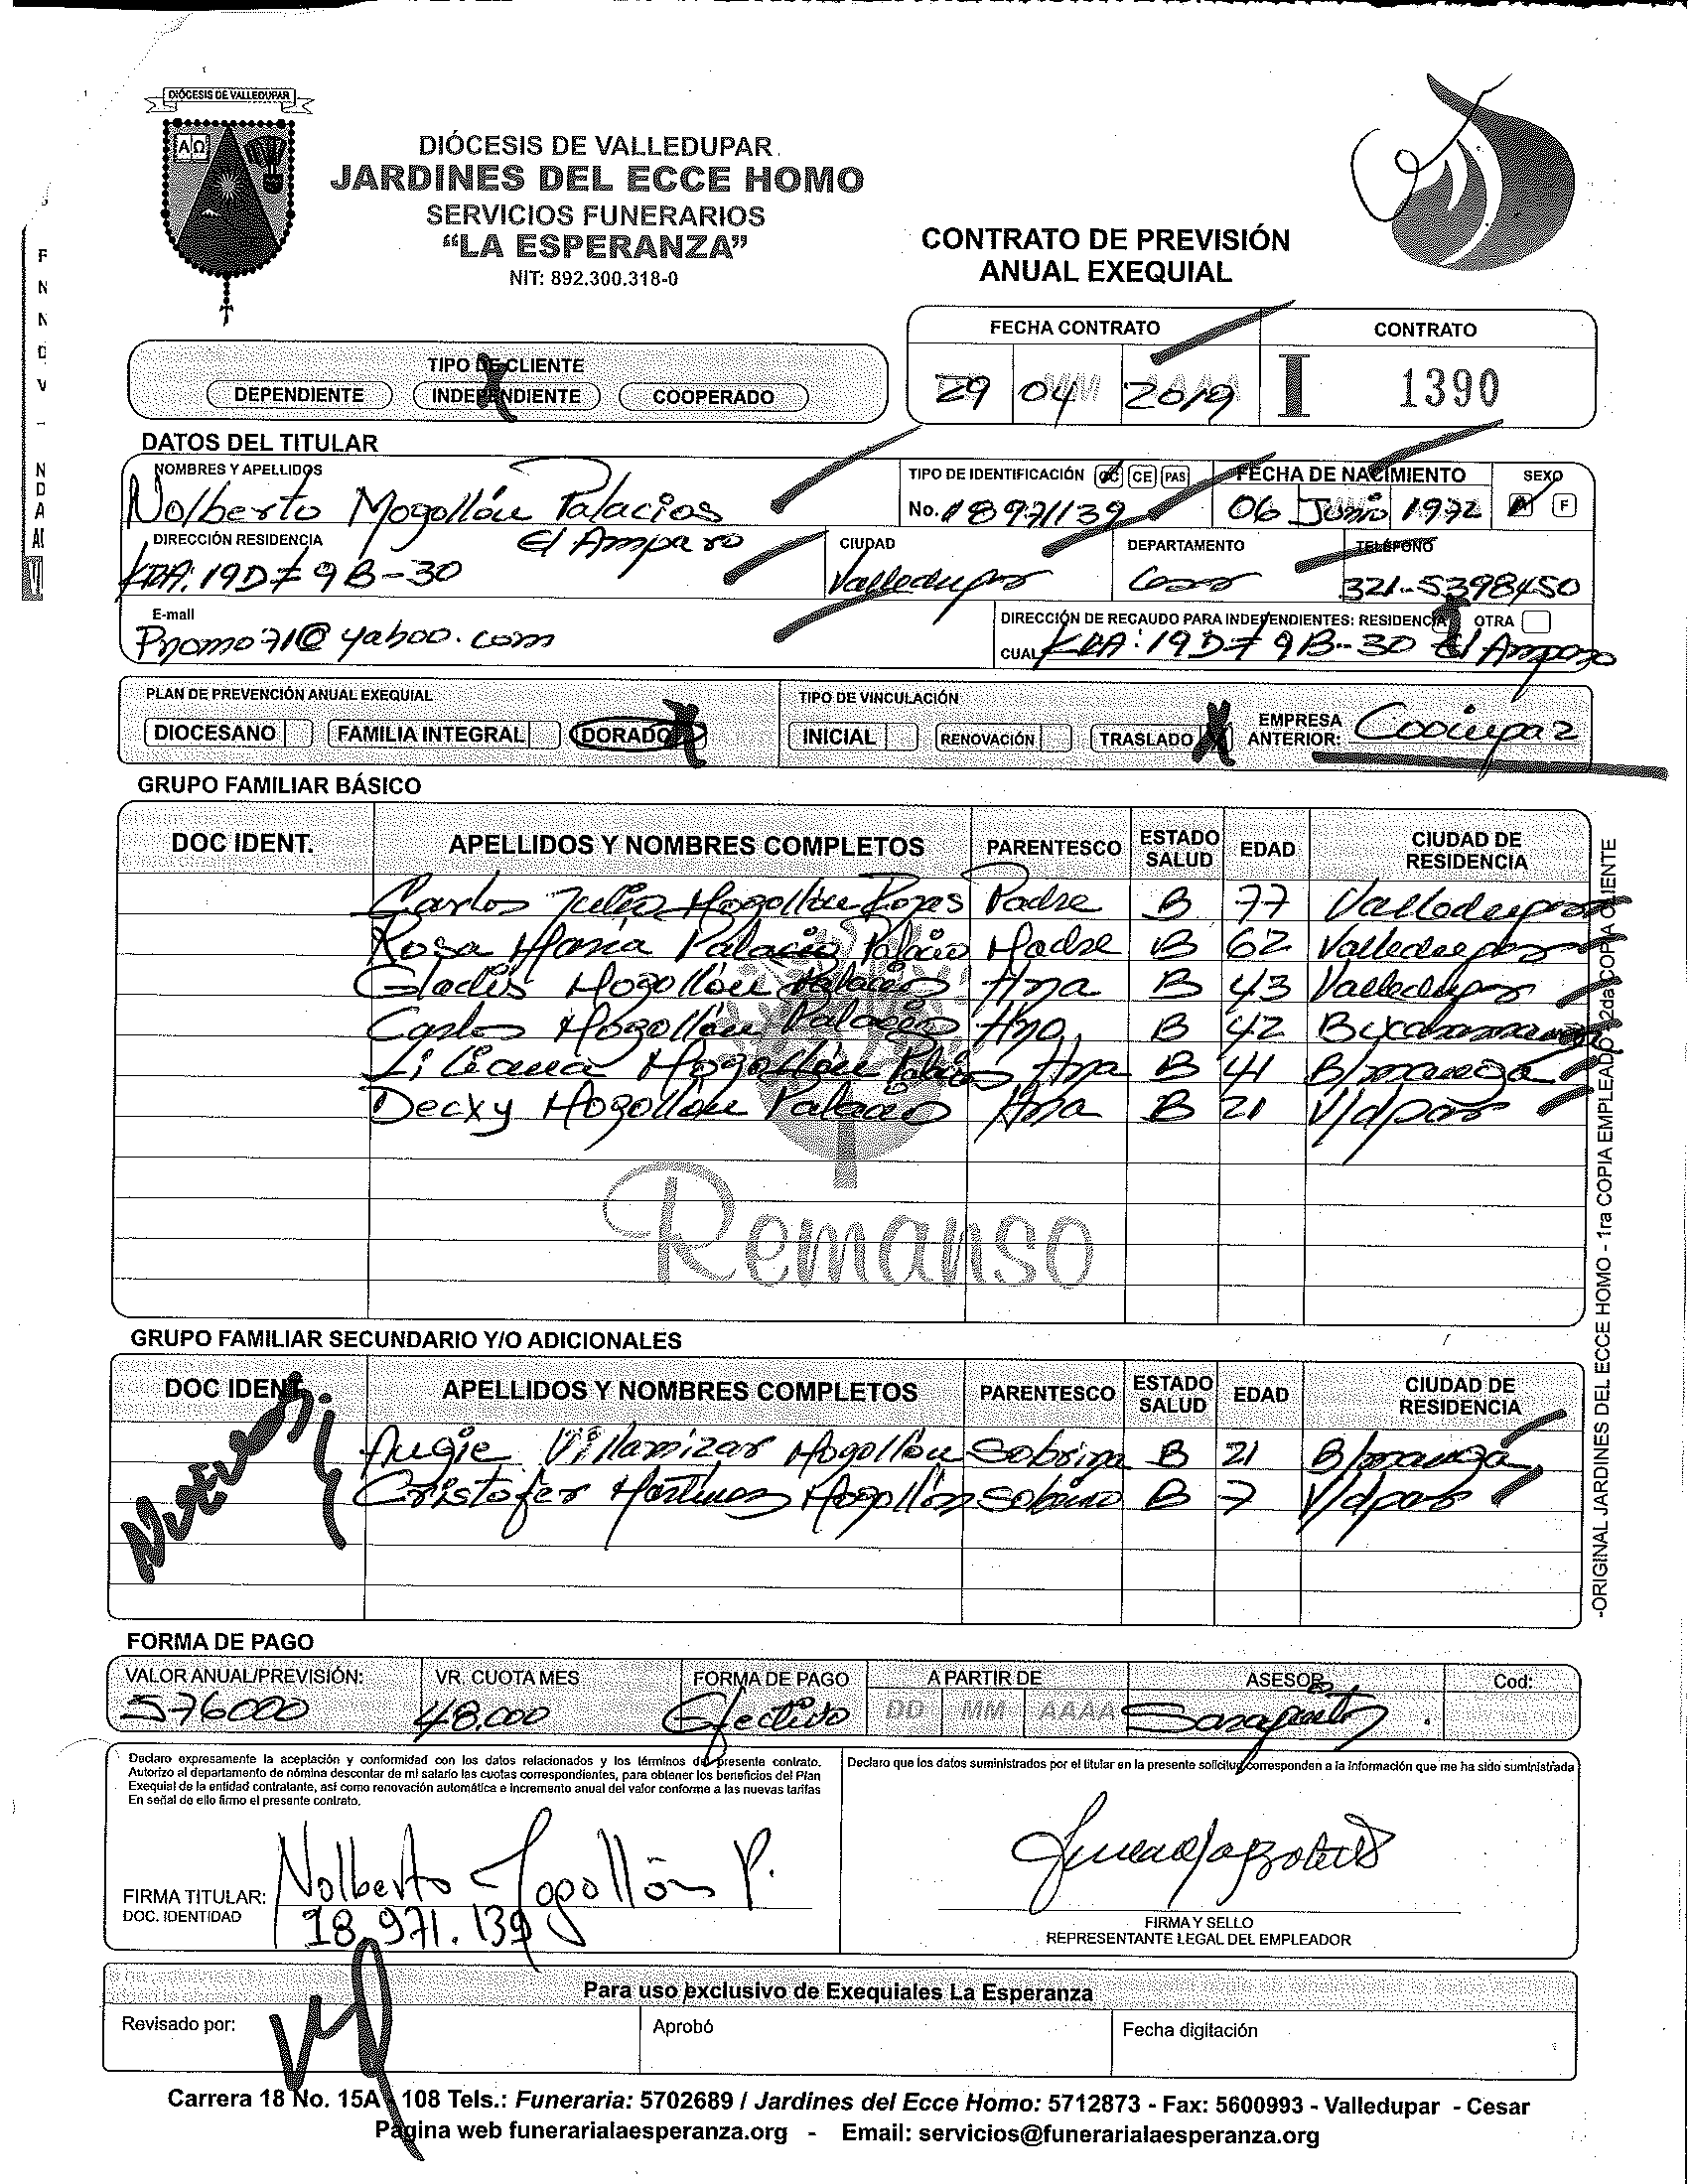 DIÓCESIS DE VALLEDUPAR
A Ω
DIÓCESIS DE VALLEDUPAR
JARDINES DEL ECCE HOMO
SERVICIOS FUNERARIOS
“LA ESPERANZA”
NIT: 892.300.318-0
CONTRATO DE PREVISIÓN
ANUAL EXEQUIAL
FECHA CONTRATO CONTRATO
29 04 2019 I 1390
TIPO DE CLIENTE
DEPENDIENTE INDEPENDIENTE COOPERADO
DATOS DEL TITULAR
NOMBRES Y APELLIDOS TIPO DE IDENTIFICACIÓN CC CE PAS FECHA DE NACIMIENTO SEXO
Nolberto Mogollón Palacios No. 18971139 06 Junio 1972 M F
DIRECCIÓN RESIDENCIA El Amparo CIUDAD DEPARTAMENTO TELÉFONO
KRA: 19D # 9B-30 Valledupar Cesar 321-5398450
E-mail DIRECCIÓN DE RECAUDO PARA INDEPENDIENTES: RESIDENCIA OTRA
Promo71@yahoo.com CUAL KRA: 19D # 9B-30 El Amparo
PLAN DE PREVENCIÓN ANUAL EXEQUIAL TIPO DE VINCULACIÓN
DIOCESANO FAMILIA INTEGRAL DORADO X INICIAL RENOVACIÓN TRASLADO X EMPRESA ANTERIOR: Cooinpaz
GRUPO FAMILIAR BÁSICO
DOC IDENT. APELLIDOS Y NOMBRES COMPLETOS PARENTESCO ESTADO SALUD EDAD CIUDAD DE RESIDENCIA
Carlos Julio Mogollón Padre B 77 Valledupar
Rosa María Palacio Palacio Madre B 62 Valledupar
Gladis Mogollón Palacios Hna B 43 Valledupar
Carlos Mogollón Palacios Hno B 42
Liliana Mogollón Palacios Hna B 41 B/manga
Decxy Mogollón Palacios Hna B 21 V/dpar
Remanso
GRUPO FAMILIAR SECUNDARIO Y/O ADICIONALES
DOC IDENT. APELLIDOS Y NOMBRES COMPLETOS PARENTESCO ESTADO SALUD EDAD CIUDAD DE RESIDENCIA
Nuevos
Angie Villamizar Mogollón Sobrina B 21 B/manga
Cristofer Martinez Mogollón Sobrino B 7 V/dpar
-ORIGINAL JARDINES DEL ECCE HOMO - 1ra COPIA EMPLEADO 2da COPIA CLIENTE
FORMA DE PAGO
VALOR ANUAL/PREVISIÓN: VR. CUOTA MES FORMA DE PAGO A PARTIR DE ASESOR Cod:
576000 48.000 Efectivo DD MM AAAA
Declaro expresamente la aceptación y conformidad con los datos relacionados y los términos del presente contrato.
Autorizo al departamento de nómina descontar de mi salario las cuotas correspondientes, para obtener los beneficios del Plan
Exequial de la entidad contratante, así como renovación automática e incremento anual del valor conforme a las nuevas tarifas
En señal de ello firmo el presente contrato.
Declaro que los datos suministrados por el titular en la presente solicitud corresponden a la información que me ha sido suministrada
FIRMA TITULAR: Nolberto Mogollón P.
DOC. IDENTIDAD 18.971.139
FIRMA Y SELLO
REPRESENTANTE LEGAL DEL EMPLEADOR
Para uso exclusivo de Exequiales La Esperanza
Revisado por: Aprobó Fecha digitación
Carrera 18 No. 15A 108 Tels.: Funeraria: 5702689 / Jardines del Ecce Homo: 5712873 - Fax: 5600993 - Valledupar - Cesar
Pagina web funerarialaesperanza.org - Email: servicios@funerarialaesperanza.org